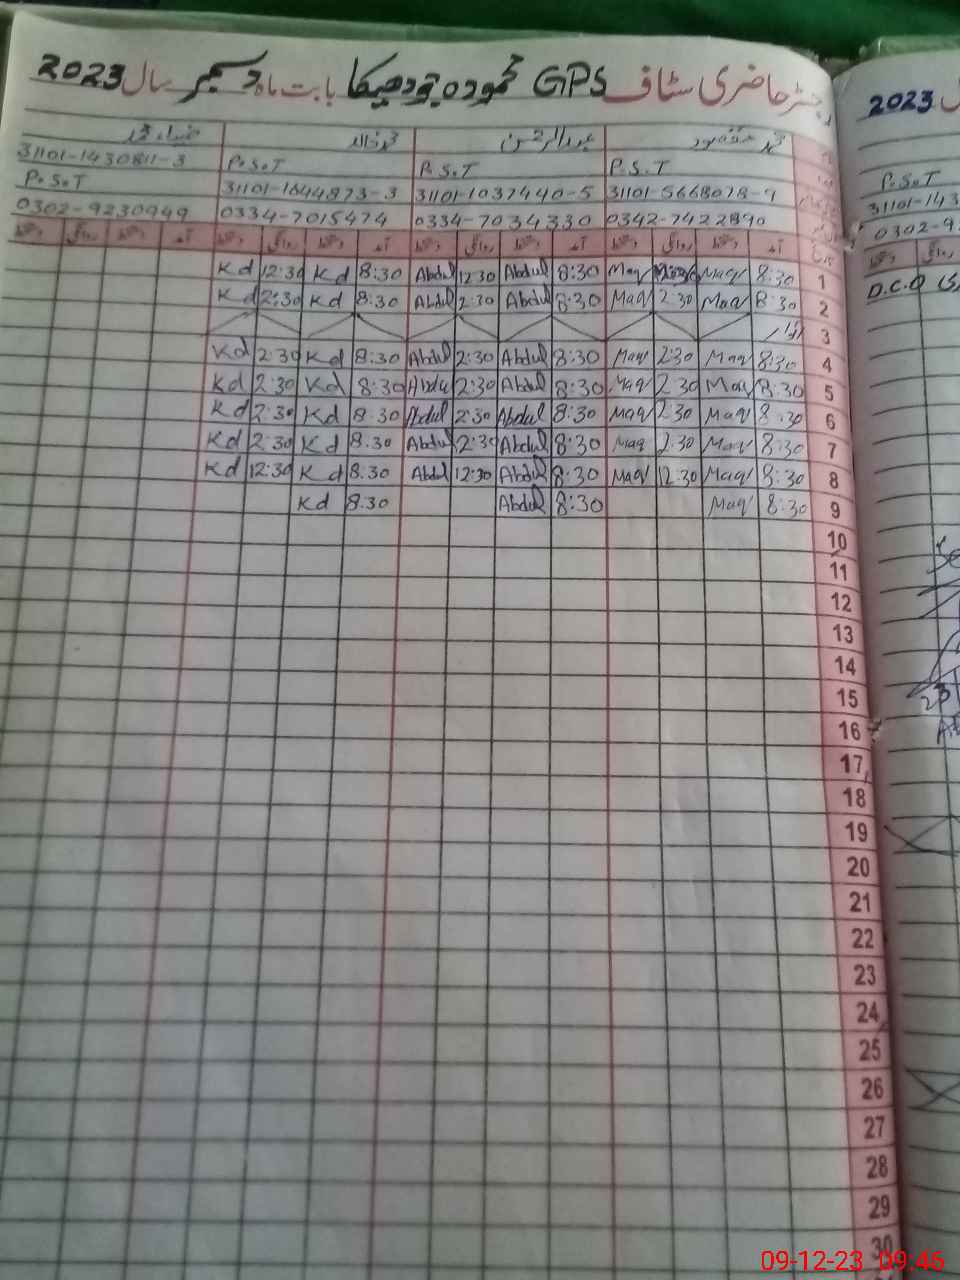 رجسٹر حاضری سٹاف GPS محمودہ بودھیکا بابت ماہ دسمبر سال 2023
محمد مقصود عبدالرحمن محمد خالد ضیاء محمد
P.S.T P.S.T P.S.T 31101-1430811-3
31101-5668078-9 31101-1037440-5 31101-1644873-3 P.S.T
0342-7422890 0334-7034330 0334-7015474 0302-9230949
آمد دستخط روانگی دستخط آمد دستخط روانگی دستخط آمد دستخط روانگی دستخط آمد دستخط روانگی دستخط
1 8:30 Maq Maq 8:30 Abdul 12:30 Abdul 8:30 Kd 12:30 Kd
2 8:30 Maq 2:30 Maq 8:30 Abdul 2:30 Abdul 8:30 Kd 2:30 Kd
3 اتوار
4 8:30 Maq 2:30 Maq 8:30 Abdul 2:30 Abdul 8:30 Kd 2:30 Kd
5 8:30 Maq 2:30 Maq 8:30 Abdul 2:30 Abdul 8:30 Kd 2:30 Kd
6 8:30 Maq 2:30 Maq 8:30 Abdul 2:30 Abdul 8:30 Kd 2:30 Kd
7 8:30 Maq 2:30 Maq 8:30 Abdul 2:30 Abdul 8:30 Kd 2:30 Kd
8 8:30 Maq 12:30 Maq 8:30 Abdul 12:30 Abdul 8:30 Kd 12:30 Kd
9 8:30 Maq 8:30 Abdul 8:30 Kd
10
11
12
13
14
15
16
17
18
19
20
21
22
23
24
25
26
27
28
29
30
2023
P.S.T
31101-143
0302-9
روانگی دستخط
D.C.O
23
09-12-23 09:46